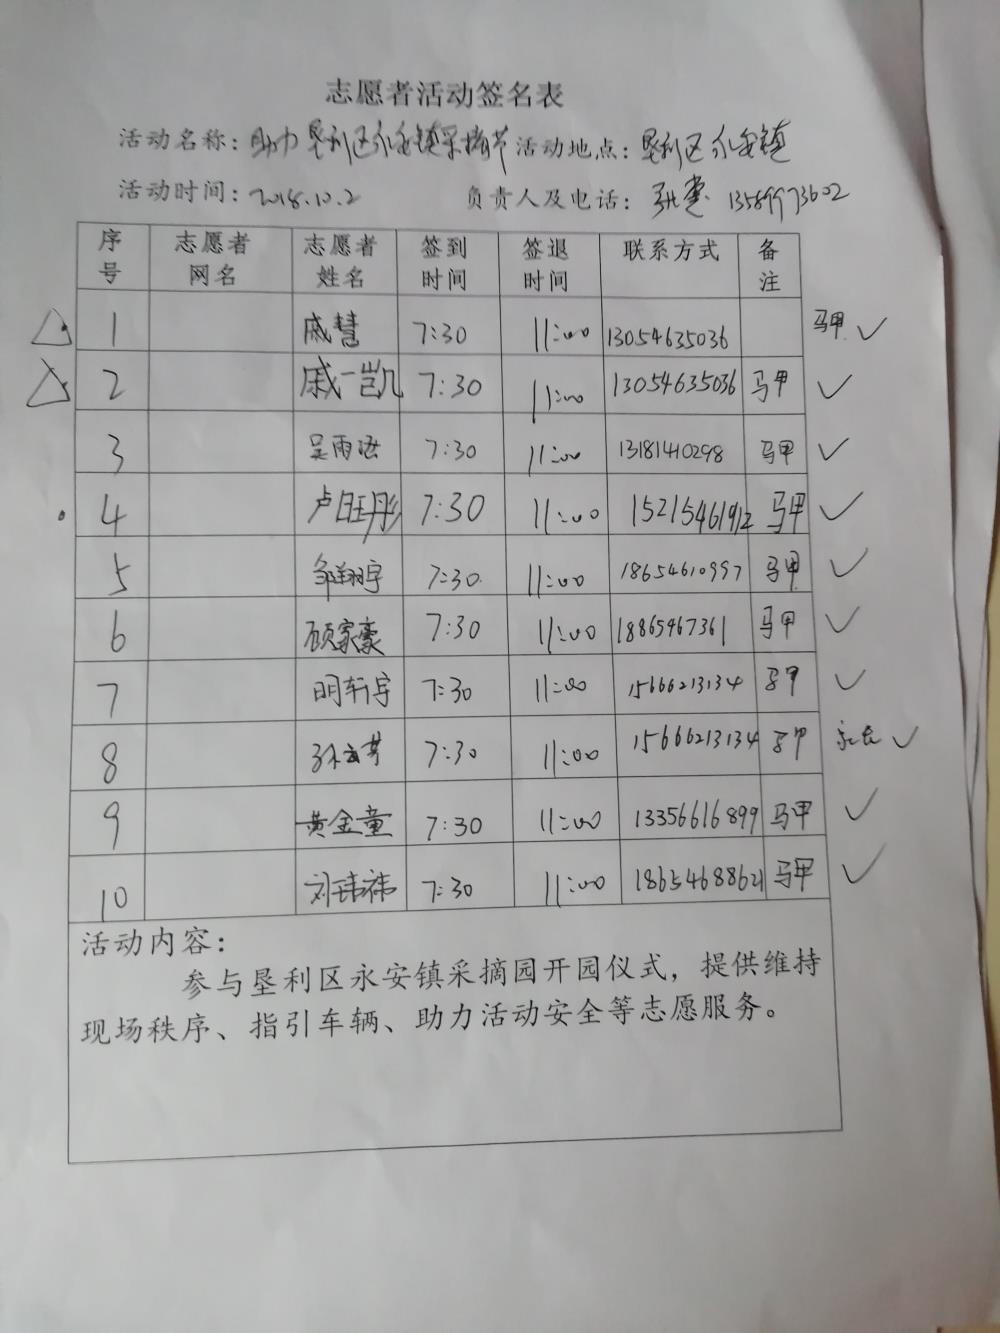 志愿者活动签名表
活动名称：助力垦利区永安镇采摘节 活动地点：垦利区永安镇
活动时间：2018.10.2 负责人及电话：张惠 13589973602
序号 志愿者网名 志愿者姓名 签到时间 签退时间 联系方式 备注
1 戚慧 7:30 11:00 13054635036 马甲 ✓
2 戚一凯 7:30 11:00 13054635036 马甲 ✓
3 吴雨 7:30 11:00 13181410298 马甲 ✓
4 卢旺彤 7:30 11:00 15215461912 马甲 ✓
5 邹翔宇 7:30 11:00 18654610997 马甲 ✓
6 顾家豪 7:30 11:00 18865467361 马甲 ✓
7 明轩宇 7:30 11:00 15666213134 马甲 ✓
8 7:30 11:00 15666213134 马甲 ✓
9 黄金童 7:30 11:00 13356616899 马甲 ✓
10 刘玮祎 7:30 11:00 18654688621 马甲 ✓
活动内容：
参与垦利区永安镇采摘园开园仪式，提供维持
现场秩序、指引车辆、助力活动安全等志愿服务。